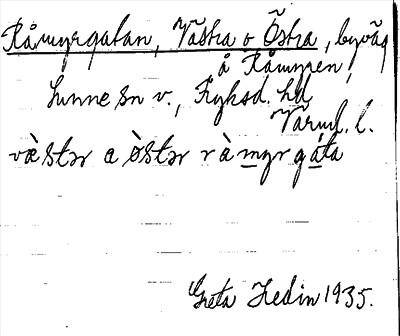 Råmyrgatan, Västra o Östra, byväg
å Råmyren,
Sunne sn v., Fryksd. hd
Värml. l.
væ̀stər a ö̀stər rà myrgáta
Greta Hedin 1935.